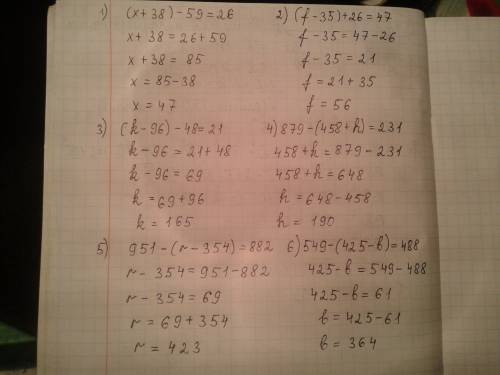 1) (x+38)-59=26
x+38=26+59
x+38=85
x=85-38
x=47
2) (f-35)+26=47
f-35=47-26
f-35=21
f=21+35
f=56
3) (k-96)-48=21
k-96=21+48
k-96=69
k=69+96
k=165
4) 879-(458+h)=231
458+h=879-231
458+h=648
h=648-458
h=190
5) 951-(r-354)=882
r-354=951-882
r-354=69
r=69+354
r=423
6) 549-(425-b)=488
425-b=549-488
425-b=61
b=425-61
b=364